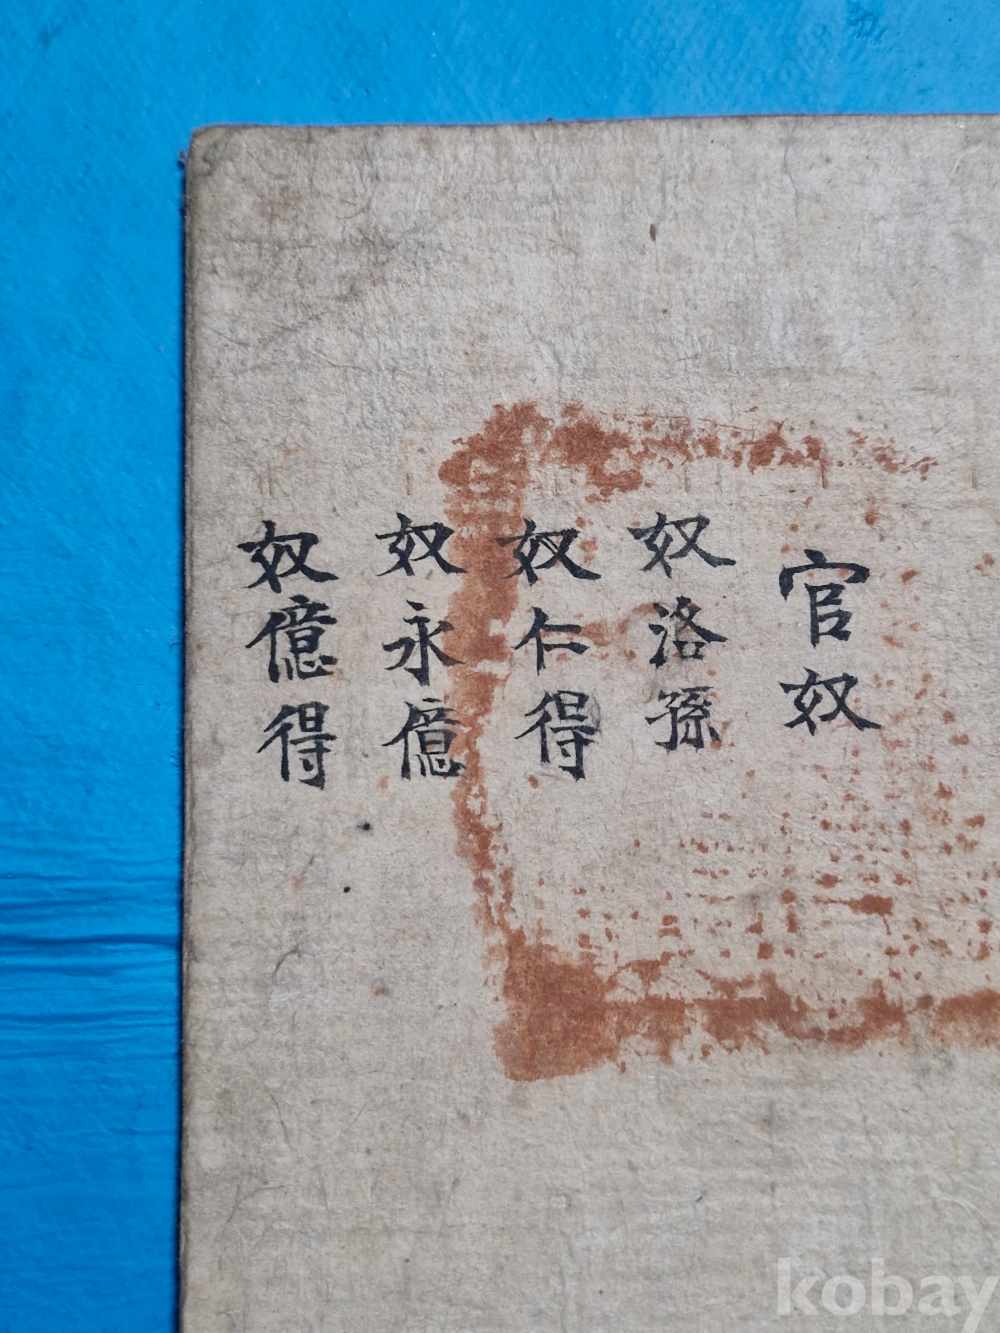 官奴
奴洛孫
奴仁得
奴永億
奴億得
kobay